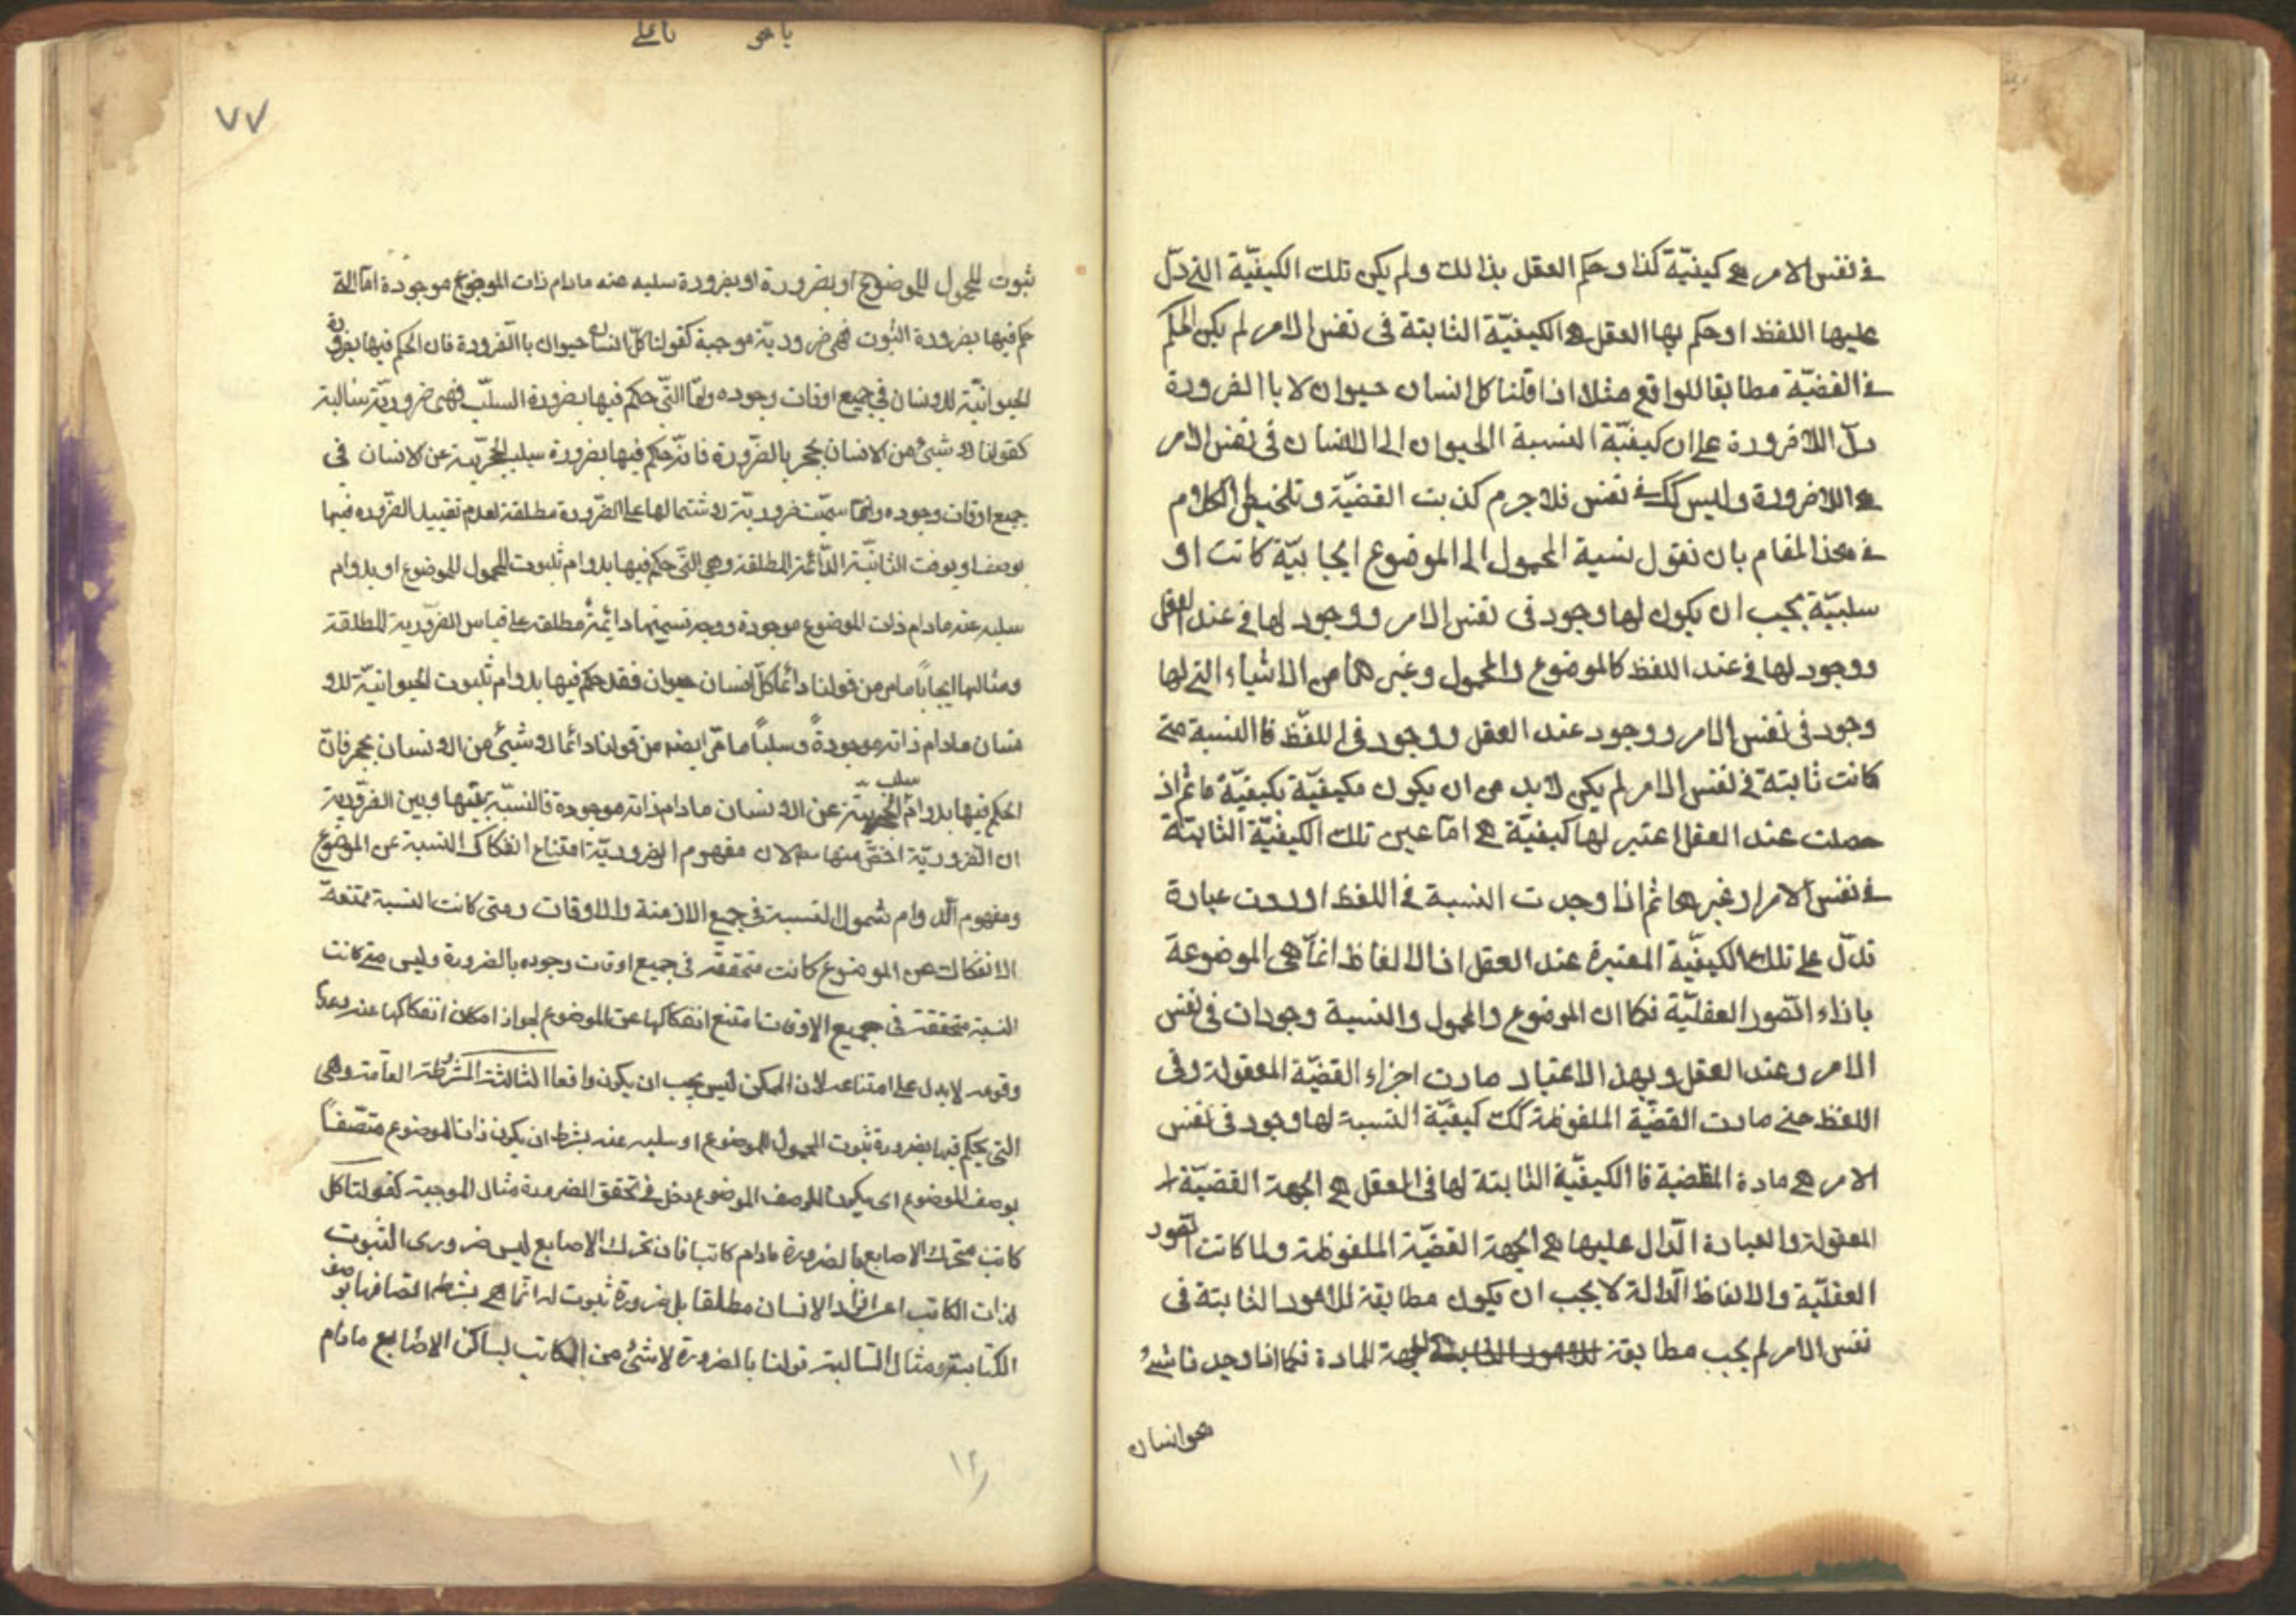 في نفس الامر هي كيفيّة كذا وحكم العقل بذالك ولم يكن تلك الكيفيّة التي دلّ
عليها اللفظ او حكم بها العقل هي الكيفيّة الثابتة فى نفس الامر لم يكن الحكم
في القضيّة مطابقا للواقع مثلا اذا قلنا كل انسان حيوان لا باالضرورة
دلّ اللاضرورة على ان كيفيّة النسبة الحيوان الى الانسان فى نفس الامر
هي اللاضرورة وليس كك في نفس فلا جرم كذبت القضيّة وتلخيص الكلام
في هذا المقام بان نقول نسبة المحمول الى الموضوع ايجابيّة كانت او
سلبيّة يجب ان يكون لها وجود فى نفس الامر ووجود لها في عند العقل
ووجود لها في عند اللفظ كالموضوع والمحمول وغيرهما من الاشياء التي لها
وجود فى نفس الامر ووجود عند العقل ووجود فى اللفظ فاالنسبة متى
كانت ثابتة في نفس الامر لم يكن لابد من ان يكون مكيفيّة بكيفيّة ما ثم اذ
حصلت عند العقل اعتبر لها كيفيّة هي امّا عين تلك الكيفيّة الثابتة
في نفس الامر او غيرها ثم اذا وجدت النسبة في اللفظ اوردت عبارة
تدلّ على تلك الكيفيّة المعتبرة عند العقل اذ الالفاظ انمّا هى الموضوعة
باذاء الصّور العقليّة فكما ان الموضوع والمحمول والنسبة وجودات فى نفس
الامر وعند العقل وبهذ الاعتبار صارت اجزاء القضيّة المعقولة وفى
اللفظ حتي صارت القضيّة الملفوظة كك كيفيّة النسبة لها وجود فى نفس
الامر هي مادة القضية فا الكيفيّة الثابتة لها فى العقل هي الجهة القضيّة
المعقولة والعبارة الدّال عليها هي الجهة القضيّة الملفوظة ولما كانت الصّور
العقليّة والالفاظ الدّالة لا يجب ان يكون مطابقة للامور الثابتة فى
نفس الامر لم يجب مطابقة للامور الثابتة الجهة للمادة فكما اذا وجدنا شئ
هو انسان
يا هو يا على
٧٧
ثبوت المحمول للموضوع او بضرورة او بضرورة سلبه عنه مادام ذات الموضوع موجودة امّا التي
حكم فيها بضرورة الثبوت فهى ضروديّة موجبة كقولنا كلّ انسان حيوان باالضّرورة فان الحكم فيها بضرورة
الحيوانيّة للانسان في جميع اوقات وجوده وامّا التّي حكم فيها بضرورة السلب فهى ضروريّة سالبة
كقولنا لا شيئ من الانسان بحجر بالضّرورة فانّ حكم فيها بضرورة سلب الحجريّة عن الانسان في
جميع اوقات وجوده وانمّا سميّت ضروريّة لاشتمالها على الضّرورة مطلقة لعدم تقييد الضّرورة فيها
بوصف او بوقت الثانيّة الدّائمة المطلقة وهي التّي حكم فيها بدوام ثبوت المحمول للموضوع او بدوام
سلبه عنه مادام ذات الموضوع موجودة ووجه تسميتها دائمة مطلقة على قياس الضّروريّة المطلقة
ومثالها ايجاباً ما مر من قولنا دائماً كلّ انسان حيوان فقد حكم فيها بدوام ثبوت الحيوانيّة للا
نسان مادام ذاته موجودةً وسلباً ما مرّ ايضا من قولنا دائما لا شيئ من الانسان بحجر فانّ
الحكم فيها بدوام سلب الحجريّة عن الانسان مادام ذاته موجودة فالنسبة بينها وبين الضّروريّة
ان الضّروريّة اخصّ منها لان مفهوم الضروريّة امتناع انفكاك النسبة عن الموضوع
ومفهوم الدّوام شمول النسبة في جميع الازمنة والاوقات ومتى كانت النسبة ممتنعة
الانفكاك عن الموضوع كانت متحققة في جميع اوقات وجوده بالضرورة وليس متى كانت
النسبة متحققة فى جميع الاوقات امتنع انفكاكها عن الموضوع لجواز امكان انفكاكها عنه وعدم
وقوعه لا يدل على امتناعه لان الممكن ليس يجب ان يكون واقعا الثالثة المشروطة العامّة وهى
التى يحكم فيها بضرورة ثبوت المحمول للموضوع او سلبه عنه بشرط ان يكون ذات الموضوع متصفاً
بوصف الموضوع اى يكون للوصف الموضوع دخل في تحقق الضرورة مثال الموجبة كقولنا كل
كاتب متحرك الاصابع بالضرورة مادام كاتبا فان تحرك الاصابع ليس ضرورى الثبوت
لذات الكاتب اعنى افراد الانسان مطلقا بل ضرورة ثبوت له انّما هي بشرط اتصافها بوصف
الكتابة ومثال السّالبة قولنا بالضرورة لا شئ من الكاتب بساكن الاصابع مادام